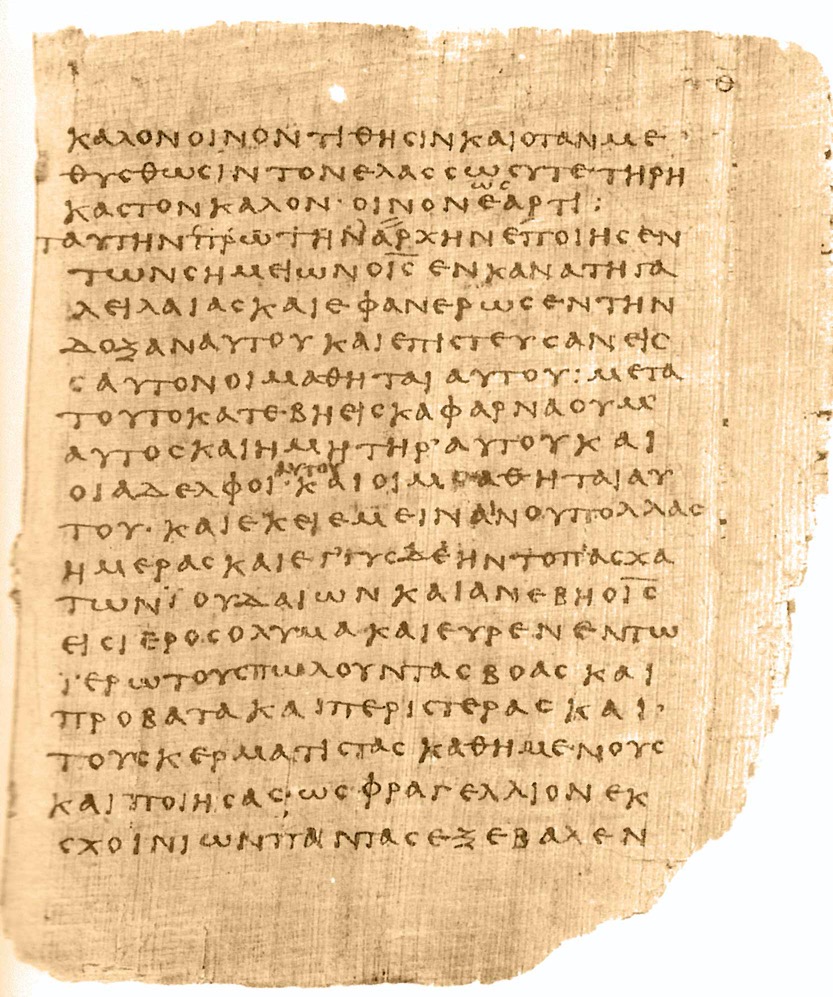 Θ
ΚΑΛΟΝ ΟΙΝΟΝ ΤΙΘΗϹΙΝ ΚΑΙ ΟΤΑΝ ΜΕ
ΘΥϹΘΩϹΙΝ ΤΟΝ ΕΛΑϹϹΩ ϹΥ ΤΕΤΗΡΗ
ΚΑϹ ΤΟΝ ΚΑΛΟΝ· ΟΙΝΟΝ ΕΩϹ ΑΡΤΙ :
ΤΑΥΤΗΝ ΠΡΩΤΗΝ ΑΡΧΗΝ ΕΠΟΙΗϹΕΝ
ΤΩΝ ϹΗΜΕΙΩΝ Ο Ι̅Ϲ̅ ΕΝ ΚΑΝΑ ΤΗ ΓΑ
ΛΕΙΛΑΙΑϹ ΚΑΙ ΕΦΑΝΕΡΩϹΕΝ ΤΗΝ
ΔΟΞΑΝ ΑΥΤΟΥ ΚΑΙ ΕΠΙϹΤΕΥϹΑΝ ΕΙϹ
ΑΥΤΟΝ ΟΙ ΜΑΘΗΤΑΙ ΑΥΤΟΥ : ΜΕΤΑ
ΤΟΥΤΟ ΚΑΤΕΒΗ ΕΙϹ ΚΑΦΑΡΝΑΟΥΜ
ΑΥΤΟϹ ΚΑΙ Η ΜΗΤΗΡ ΑΥΤΟΥ ΚΑΙ
ΟΙ ΑΔΕΛΦΟΙ ΑΥΤΟΥ ΚΑΙ ΟΙ ΜΑΘΗΤΑΙ ΑΥ
ΤΟΥ· ΚΑΙ ΕΚΕΙ ΕΜΕΙΝΑΝ ΟΥ ΠΟΛΛΑϹ
ΗΜΕΡΑϹ ΚΑΙ ΕΓΓΥϹ ΔΕ ΗΝ ΤΟ ΠΑϹΧΑ
ΤΩΝ ΪΟΥΔΑΙΩΝ ΚΑΙ ΑΝΕΒΗ Ο Ι̅Ϲ̅
ΕΙϹ ΙΕΡΟϹΟΛΥΜΑ ΚΑΙ ΕΥΡΕΝ ΕΝ ΤΩ
ΪΕΡΩ ΤΟΥϹ ΠΩΛΟΥΝΤΑϹ ΒΟΑϹ ΚΑΙ
ΠΡΟΒΑΤΑ ΚΑΙ ΠΕΡΙϹΤΕΡΑϹ ΚΑΙ·
ΤΟΥϹ ΚΕΡΜΑΤΙϹΤΑϹ ΚΑΘΗΜΕΝΟΥϹ
ΚΑΙ ΠΟΙΗϹΑϹ ΩϹ ΦΡΑΓΕΛΛΙΟΝ ΕΚ
ϹΧΟΙΝΙΩΝ ΠΑΝΤΑϹ ΕΞΕΒΑΛΕΝ